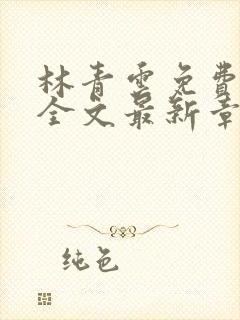 林青雲免費
全文最新章
纯色